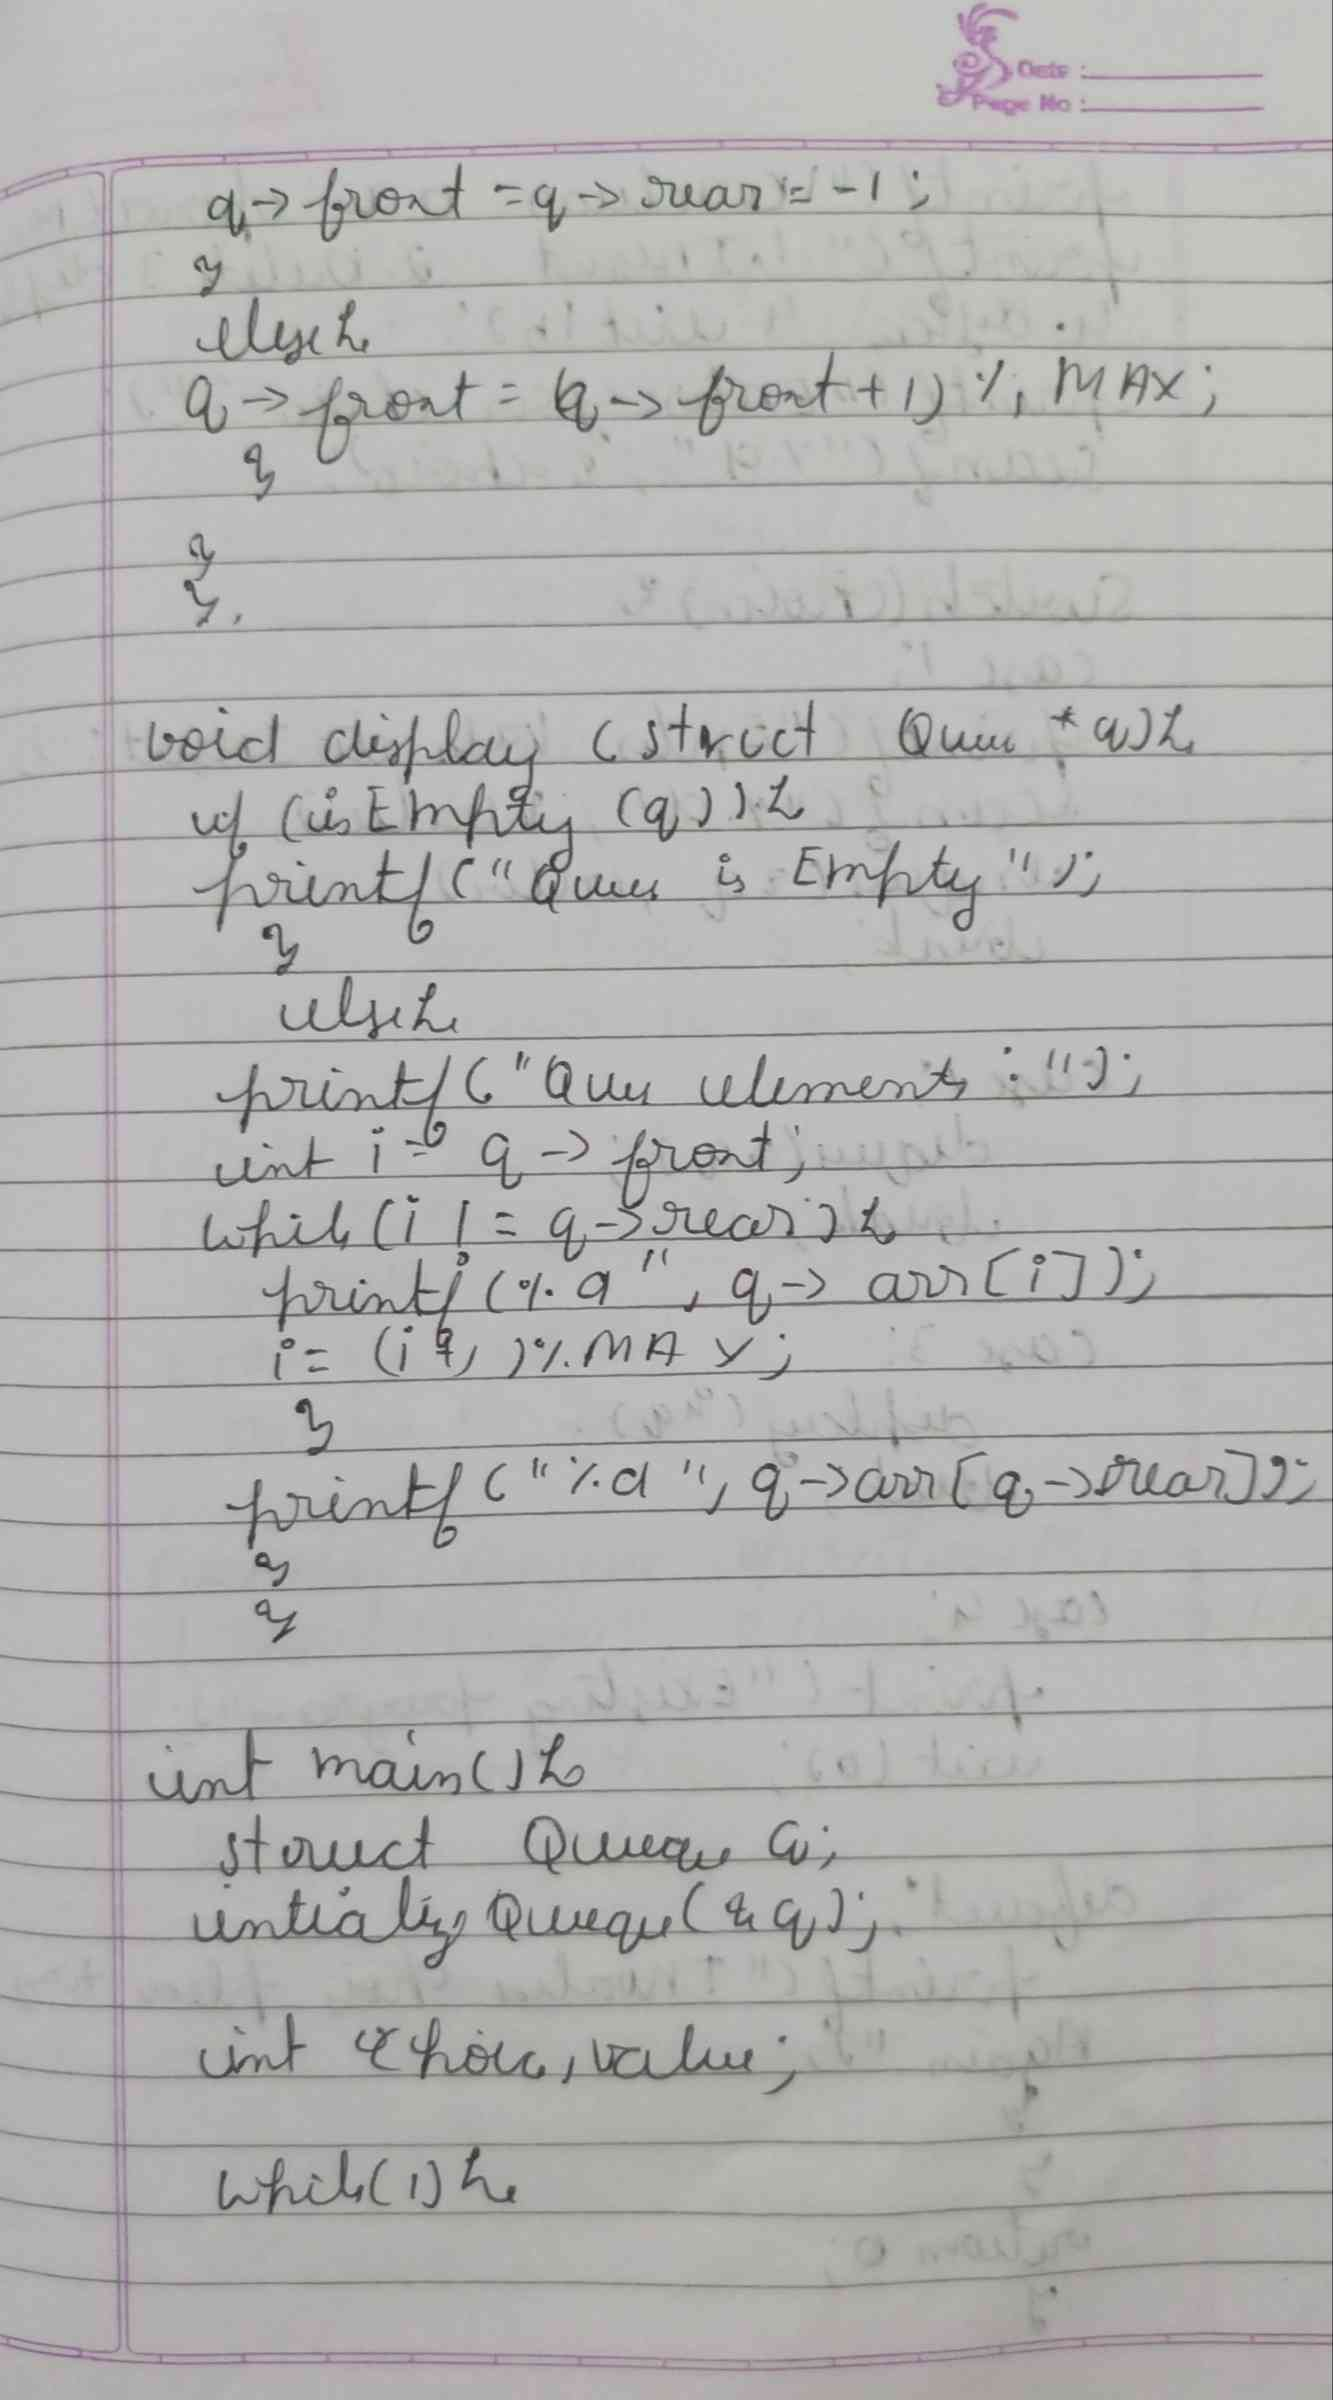 Date :
Page No :
q->front = q->rear = -1;
}
else{
q->front = (q->front+1) %, MAX;
}
}
}.
void display (struct Queue *q){
if (isEmpty (q)) {
printf("Queue is Empty");
}
else{
printf("Queue elements : ");
int i = q->front;
while(i != q->rear) {
printf(%d", q->arr[i]);
i= (i+1)%MAX;
}
printf("%d", q->arr[q->rear]);
}
}
int main(){
struct Queque q;
intialize Queque(&q);
int choice, value;
while(1){